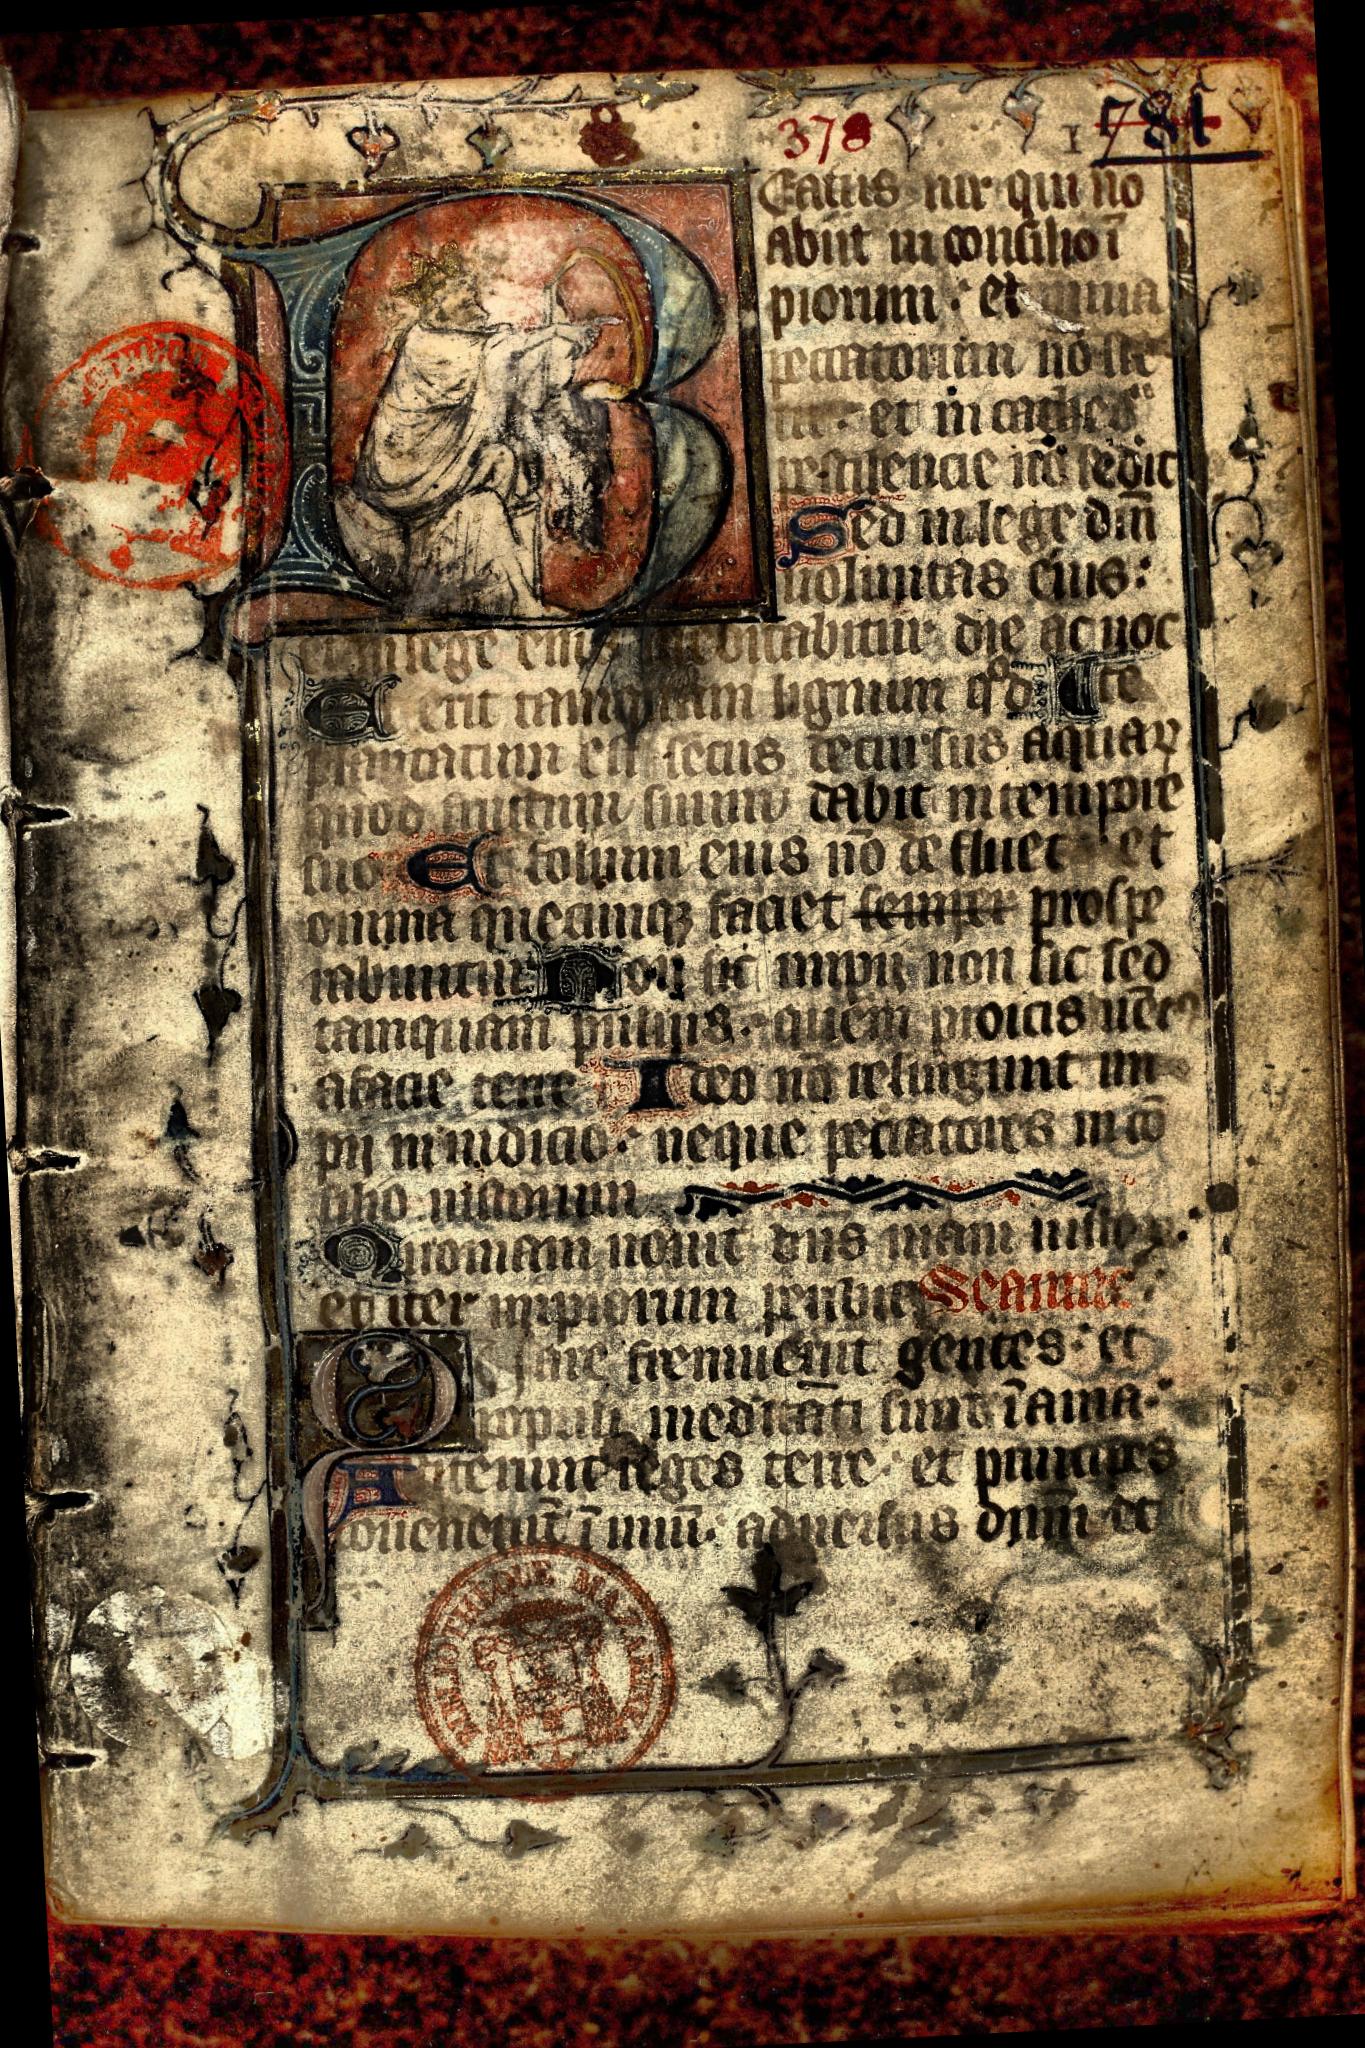 378
1 781
Beatus uir qui nõ
abiit in consilio ĩ
piorum : et in uia
peccatorum nõ ste
tit : et in cathed
pestilencie nõ sedit
Sed in lege dñi
uoluntas eius :
et in lege eius meditabitur die ac noc
Et erit tamquam lignum qd te
plantatum est secus decursus aquaꝝ
quod fructum suum dabit in tempore
suo Et folium eius nõ defluet : et
omnia quecunqꝫ faciet semper prospe
rabuntur Non sic impij non sic sed
tamquam puluis : quem proicis uẽt
a facie terre Ideo nõ resurgunt im
pij in iudicio : neque peccatores in cõ
silio iustorum
Quoniam nouit dñs uiam iustoꝝ :
et iter impiorum peribit
Quare fremuerunt gentes : et
populi meditati sunt ĩania
Astiterunt reges terre : et principes
conuenerũt ĩ unũ : aduersus dñm et
BIBLIOTHEQUE MAZARINE